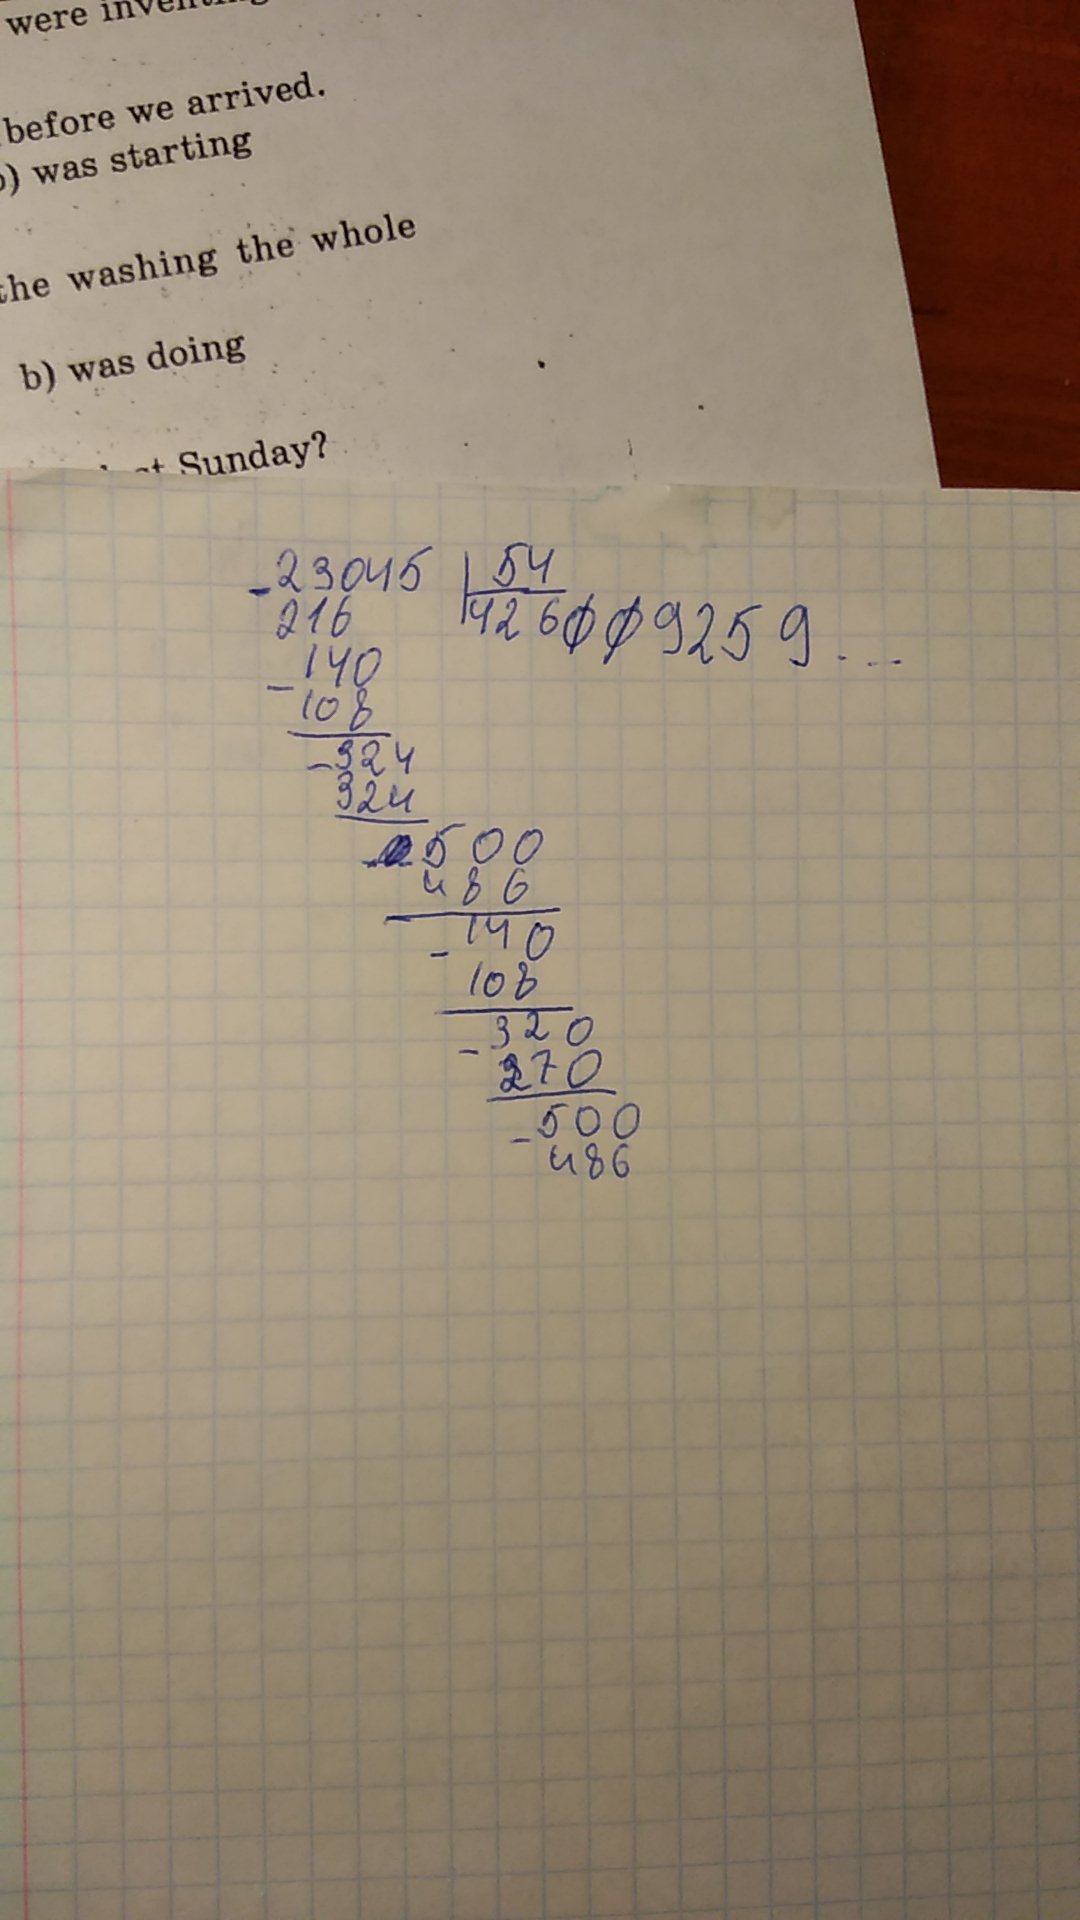 were inventing
before we arrived.
b) was starting
the washing the whole
b) was doing
Sunday?
-23045 |54
216 426009259...
-140
108
-324
324
-500
486
-140
108
-320
270
-500
486